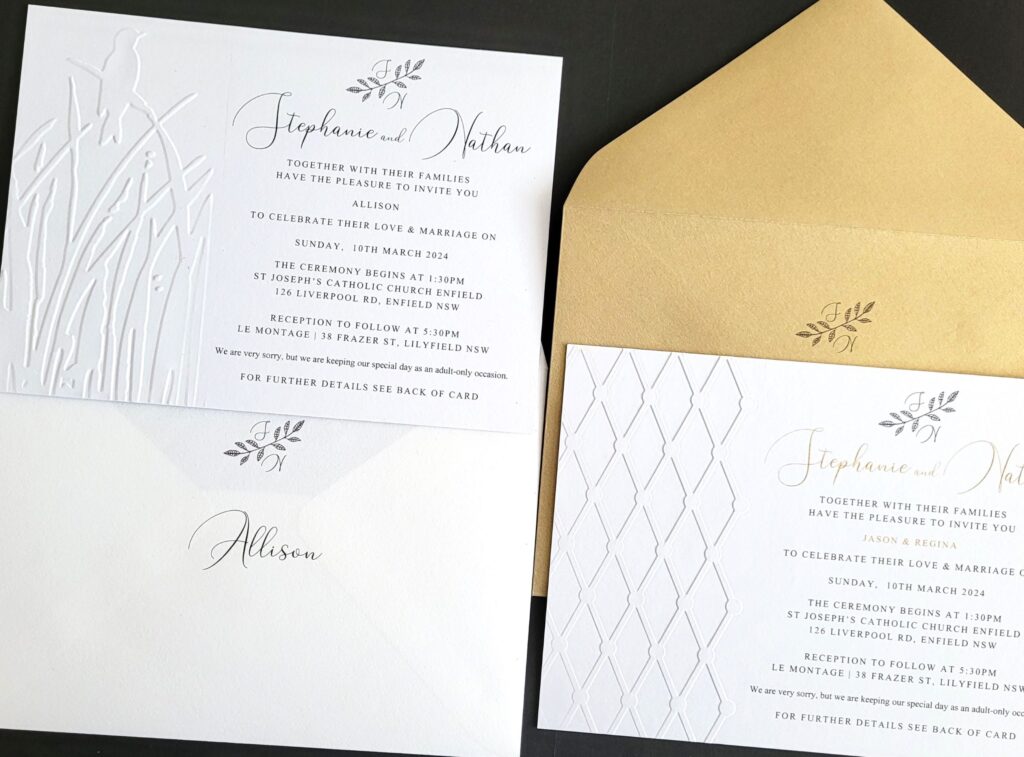 S
N
Stephanie and Nathan
TOGETHER WITH THEIR FAMILIES
HAVE THE PLEASURE TO INVITE YOU
ALLISON
TO CELEBRATE THEIR LOVE & MARRIAGE ON
SUNDAY, 10TH MARCH 2024
THE CEREMONY BEGINS AT 1:30PM
ST JOSEPH'S CATHOLIC CHURCH ENFIELD
126 LIVERPOOL RD, ENFIELD NSW
RECEPTION TO FOLLOW AT 5:30PM
LE MONTAGE | 38 FRAZER ST, LILYFIELD NSW
We are very sorry, but we are keeping our special day as an adult-only occasion.
FOR FURTHER DETAILS SEE BACK OF CARD
S
N
Allison
S
N
S
N
Stephanie and Nat
TOGETHER WITH THEIR FAMILIES
HAVE THE PLEASURE TO INVITE YOU
JASON & REGINA
TO CELEBRATE THEIR LOVE & MARRIAGE O
SUNDAY, 10TH MARCH 2024
THE CEREMONY BEGINS AT 1:30PM
ST JOSEPH'S CATHOLIC CHURCH ENFIELD
126 LIVERPOOL RD, ENFIELD NSW
RECEPTION TO FOLLOW AT 5:30PM
LE MONTAGE | 38 FRAZER ST, LILYFIELD NSW
We are very sorry, but we are keeping our special day as an adult-only occa
FOR FURTHER DETAILS SEE BACK OF CARD